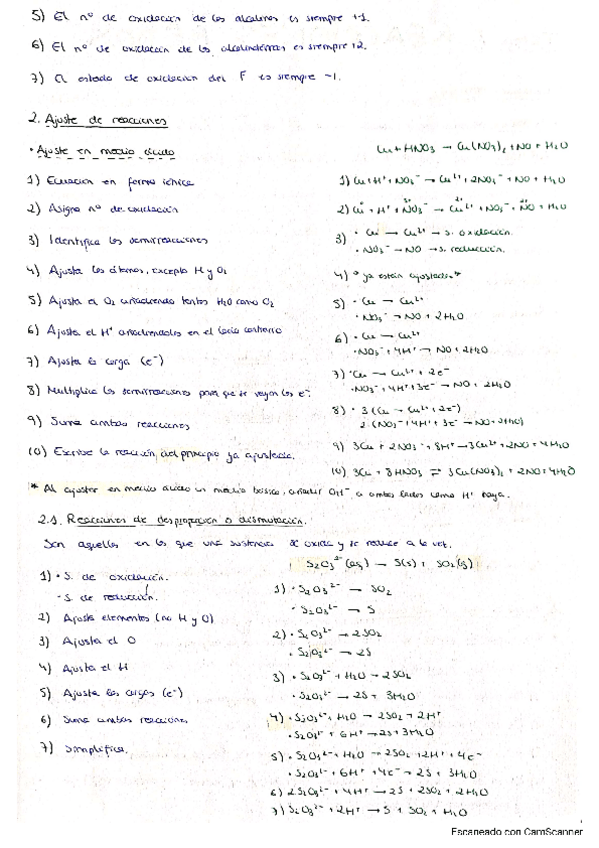 5) El nº de oxidación de los alcalinos es siempre +1.
6) El nº de oxidación de los alcalinotérreos es siempre +2.
7) El estado de oxidación del F es siempre -1.
2. Ajuste de reacciones
• Ajuste en medio ácido
Cu + HNO3 → Cu(NO3)2 + NO + H2O
1) Ecuación en forma iónica
1) Cu + H+ + NO3- → Cu2+ + 2NO3- + NO + H2O
2) Asigna nº de oxidación
2) Cu + H+ + NO3- → Cu2+ + NO3- + NO + H2O
3) Identifica las semirreacciones
3) • Cu → Cu2+ → s. oxidación.
• NO3- → NO → s. reducción.
4) Ajusta los átomos, excepto H y O2
4) * ya están ajustados *
5) Ajusta el O2 añadiendo tantos H2O como O2
5) • Cu → Cu2+
• NO3- → NO + 2H2O
6) Ajusta el H+ añadiéndolos en el lado contrario
6) • Cu → Cu2+
• NO3- + 4H+ → NO + 2H2O
7) Ajusta la carga (e-)
7) • Cu → Cu2+ + 2e-
• NO3- + 4H+ + 3e- → NO + 2H2O
8) Multiplica las semirreacciones para que se vayan los e-.
8) • 3 (Cu → Cu2+ + 2e-)
2 (NO3- + 4H+ + 3e- → NO + 2H2O)
9) Suma ambas reacciones
9) 3Cu + 2NO3- + 8H+ → 3Cu2+ + 2NO + 4H2O
10) Escribe la reacción del principio ya ajustada.
10) 3Cu + 8HNO3 ⇌ 3Cu(NO3)2 + 2NO + 4H2O
* Al ajustar en medio ácido un medio básico, añadir OH- a ambos lados como H+ haya.
2.1. Reacciones de desproporción o dismutación.
Son aquellas en las que una sustancia se oxida y se reduce a la vez.
S2O3 2-(aq) → S(s) + SO2(g)
1) • S. de oxidación.
• S. de reducción.
1) • S2O3 2- → SO2
• S2O3 2- → S
2) Ajusta elementos (no H y O)
2) • S2O3 2- → 2SO2
• S2O3 2- → 2S
3) Ajusta el O
3) • S2O3 2- + H2O → 2SO2
• S2O3 2- → 2S + 3H2O
4) Ajusta el H
4) • S2O3 2- + H2O → 2SO2 + 2H+
• S2O3 2- + 6H+ → 2S + 3H2O
5) Ajusta las cargas (e-)
5) • S2O3 2- + H2O → 2SO2 + 2H+ + 4e-
• S2O3 2- + 6H+ + 4e- → 2S + 3H2O
6) Suma ambas reacciones
6) 2S2O3 2- + 4H+ → 2S + 2SO2 + 2H2O
7) Simplifica.
7) S2O3 2- + 2H+ → S + SO2 + H2O
Escaneado con CamScanner